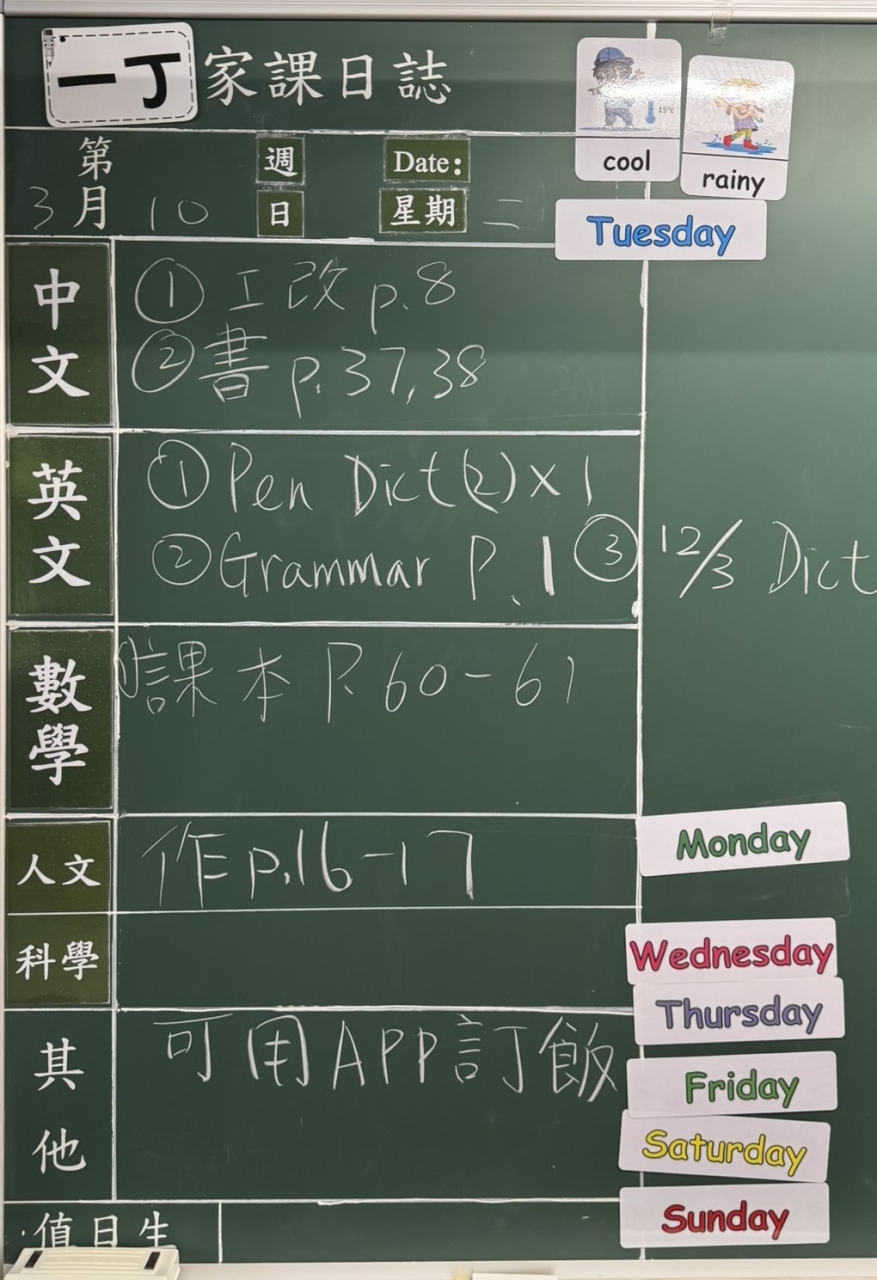 一丁 家課日誌
15°c
cool
rainy
第 週 Date:
3月10日 星期二
Tuesday
中文
① 工改 p.8
② 書 p.37,38
英文
① Pen Dict(2)×1
② Grammar P.1 ③ 12/3 Dict
數學
課本 P.60-61
人文
作 p.16-17
Monday
科學
Wednesday
Thursday
其他
可用APP訂飯
Friday
Saturday
Sunday
值日生